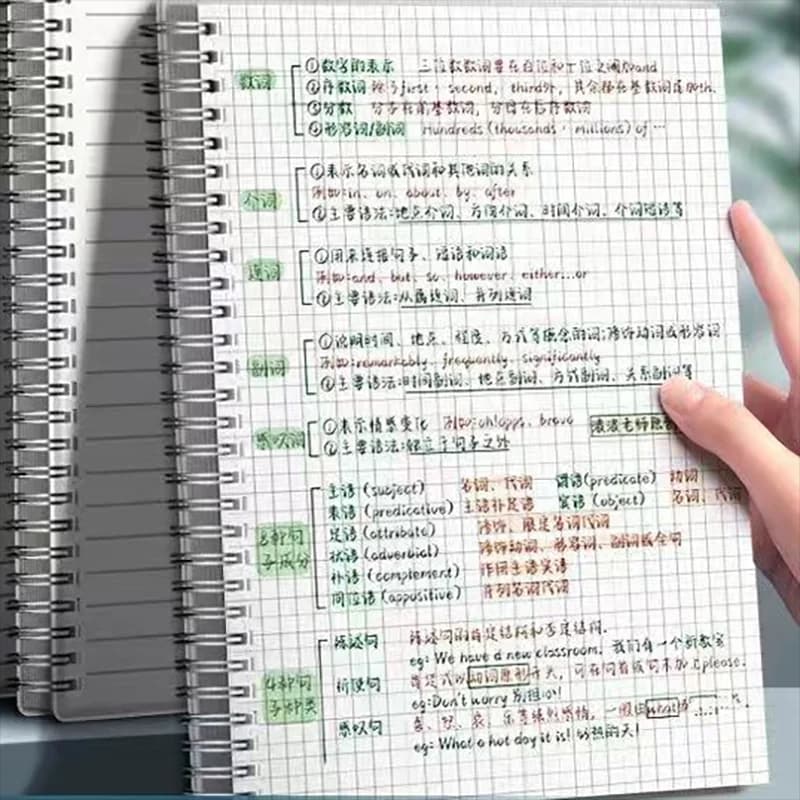 数词
①数字的表示 三位数数词要在百位和十位之间加and
②序数词 除了first, second, third外, 其余都在基数词尾加th.
③分数 分子在前基数词, 分母在后序数词
④形容词/副词 Hundreds (thousands, millions) of …
介词
①表示名词或代词和其他词的关系
例如:in、on、about、by、after
②主要语法:地点介词、方向介词、时间介词、介词短语等
连词
①用来连接句子、短语和词语
例如:and、but、so、however、either...or
②主要语法:从属连词、并列连词
副词
①说明时间、地点、程度、方式等概念的词;修饰动词或形容词
例如:remarkably、frequently、significantly
②主要语法:时间副词、地点副词、方式副词、关系副词等
感叹词
①表示情感变化 例如:oh!opps、bravo
②主要语法:独立于句子之外
8种句子成分
主语 (subject) 名词、代词 谓语(predicate) 动词
表语 (predicative) 主语补足语 宾语 (object) 名词、代词
定语 (attribute) 修饰、限定名词代词
状语 (adverbial) 修饰动词、形容词、副词或全句
补语 (complement) 作用主语宾语
同位语 (appositive) 并列名词代词
4种句子种类
陈述句 陈述句的肯定结构和否定结构.
eg: We have a new classroom. 我们有一个新教室
祈使句 肯定式以动词原形开头, 可在句首或句末加上please.
eg:Don't worry 别担心!
感叹句 喜、怒、哀、乐等强烈感情, 一般由what或
eg: What a hot day it is! 好热的天!